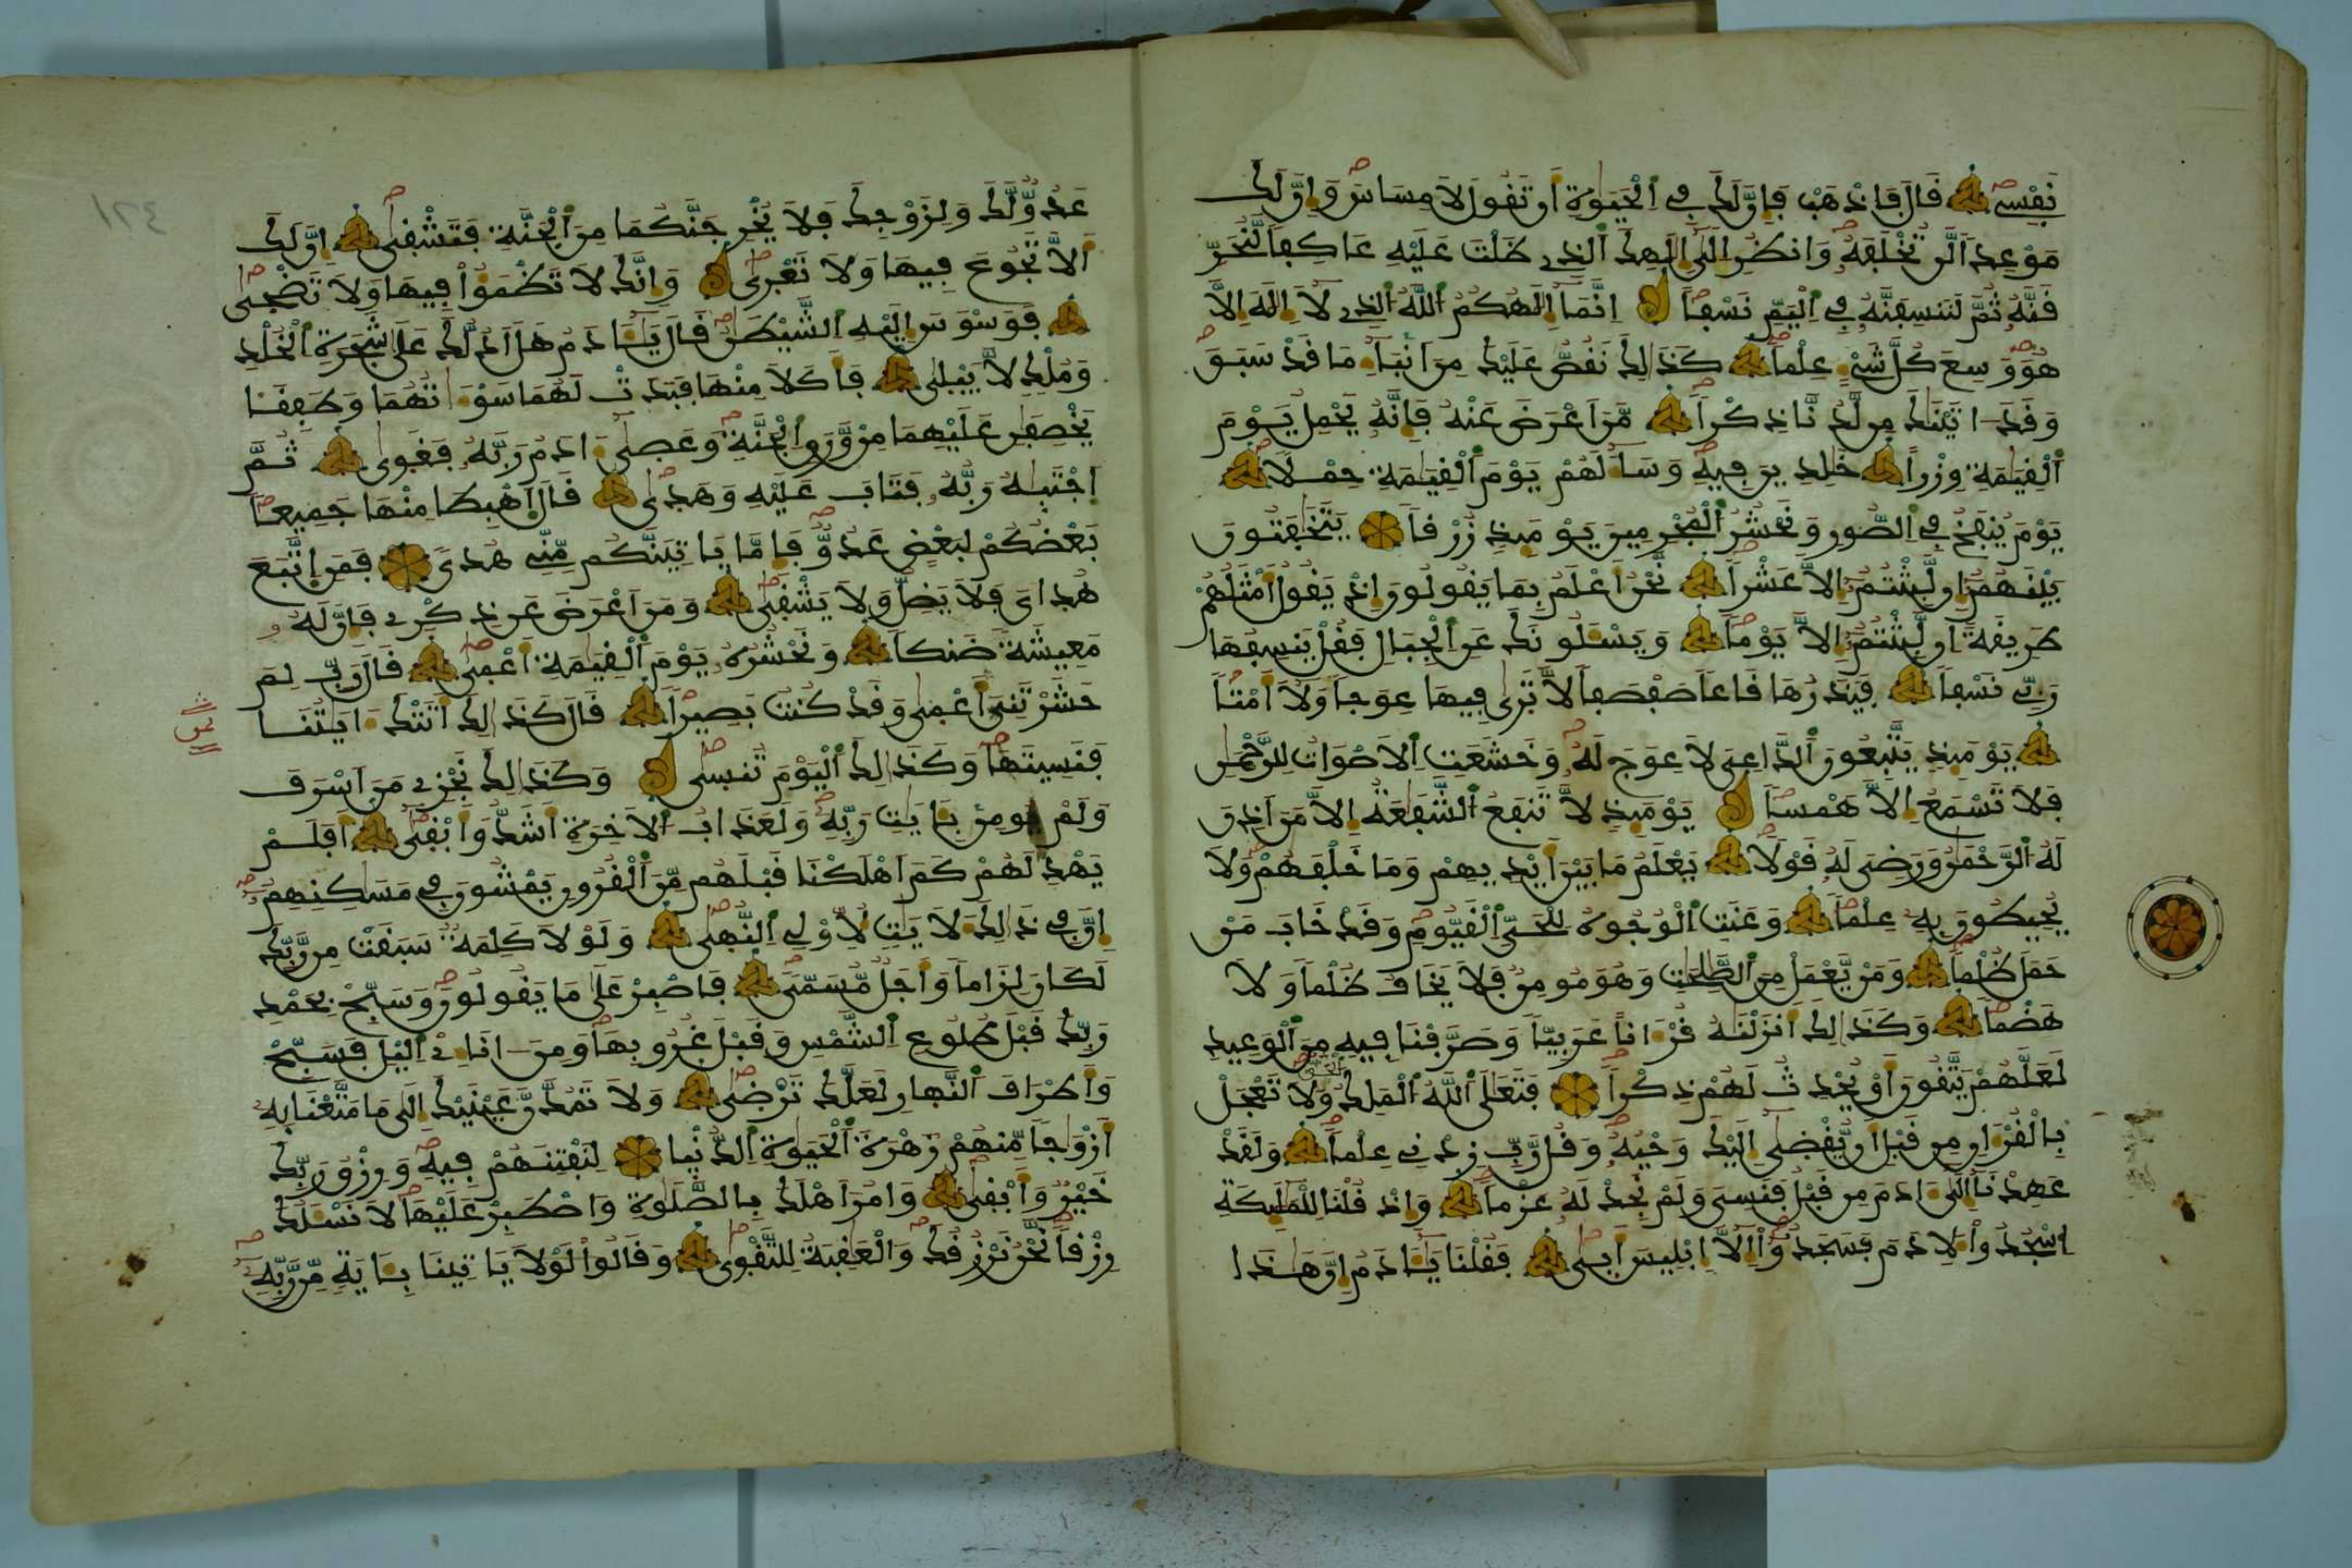 نَفْسِے قَالَ فَاذْهَبْ فَإِنَّ لَكَ فِے اِلْحَيَوٰةِ أَن تَقُولَ لَا مِسَاسَ وَإِنَّ لَكَ
مَوْعِداٗ لَّن تُخْلَفَهُۥ وَانظُرِ اِلَىٰٓ إِلَٰهِكَ اَلذِے ظَلْتَ عَلَيْهِ عَاكِفاٗ لَّنُحَرِّ
قَنَّهُۥ ثُمَّ لَنَنسِفَنَّهُۥ فِے اِلْيَمِّ نَسْفاً اِنَّمَآ إِلَٰهُكُمُ اُللَّهُ اُلذِے لَآ إِلَٰهَ إِلَّا
هُوَ وَسِعَ كُلَّ شَےْءٍ عِلْماٗ كَذَٰلِكَ نَقُصُّ عَلَيْكَ مِنَ اَنۢبَآءِ مَا قَدْ سَبَقَ
وَقَدَ اٰتَيْنَٰكَ مِن لَّدُنَّا ذِكْراٗ مَّنَ اَعْرَضَ عَنْهُ فَإِنَّهُۥ يَحْمِلُ يَوْمَ
اَلْقِيَٰمَةِ وِزْراً خَٰلِدِينَ فِيهِ وَسَآءَ لَهُمْ يَوْمَ اَلْقِيَٰمَةِ حِمْلاٗ
يَوْمَ يُنفَخُ فِے اِلصُّورِ وَنَحْشُرُ اُلْمُجْرِمِينَ يَوْمَئِذٖ زُرْقاٗ يَتَخَٰفَتُونَ
بَيْنَهُمُۥٓ إِن لَّبِثْتُمُۥٓ إِلَّا عَشْراٗ نَّحْنُ أَعْلَمُ بِمَا يَقُولُونَ إِذْ يَقُولُ أَمْثَلُهُمْ
طَرِيقَةً اِن لَّبِثْتُمُۥٓ إِلَّا يَوْماٗ وَيَسْـَٔلُونَكَ عَنِ اِلْجِبَالِ فَقُلْ يَنسِفُهَا
رَبِّے نَسْفاٗ فَيَذَرُهَا قَاعاٗ صَفْصَفاٗ لَّا تَرَىٰ فِيهَا عِوَجاٗ وَلَآ أَمْتاٗ
يَوْمَئِذٖ يَتَّبِعُونَ اَلدَّاعِىَ لَا عِوَجَ لَهُۥ وَخَشَعَتِ اِلَاصْوَاتُ لِلرَّحْمَٰنِ
فَلَا تَسْمَعُ إِلَّا هَمْساٗ يَوْمَئِذٖ لَّا تَنفَعُ اُلشَّفَٰعَةُ إِلَّا مَنَ اَذِنَ
لَهُ اُلرَّحْمَٰنُ وَرَضِىَ لَهُۥ قَوْلاٗ يَعْلَمُ مَا بَيْنَ أَيْدِيهِمْ وَمَا خَلْفَهُمْ وَلَا
يُحِيطُونَ بِهِۦ عِلْماٗ وَعَنَتِ اِلْوُجُوهُ لِلْحَىِّ اِلْقَيُّومِ وَقَدْ خَابَ مَنْ
حَمَلَ ظُلْماٗ وَمَنْ يَّعْمَلْ مِنَ اَلصَّٰلِحَٰتِ وَهُوَ مُومِنٞ فَلَا يَخَافُ ظُلْماٗ وَلَا
هَضْماٗ وَكَذَٰلِكَ أَنزَلْنَٰهُ قُرْءَاناً عَرَبِيّاٗ وَصَرَّفْنَا فِيهِ مِنَ اَلْوَعِيدِ
لَعَلَّهُمْ يَتَّقُونَ أَوْ يُحْدِثُ لَهُمْ ذِكْراٗ فَتَعَٰلَى اَللَّهُ اُلْمَلِكُ اُلْحَقُّ وَلَا تَعْجَلْ
بِالْقُرْءَانِ مِن قَبْلِ أَنْ يُّقْضَىٰٓ إِلَيْكَ وَحْيُهُۥ وَقُل رَّبِّ زِدْنِے عِلْماٗ وَلَقَدْ
عَهِدْنَآ إِلَىٰٓ ءَادَمَ مِن قَبْلُ فَنَسِىَ وَلَمْ نَجِدْ لَهُۥ عَزْماٗ وَإِذْ قُلْنَا لِلْمَلَٰٓئِكَةِ
اِسْجُدُواْ لِأدَمَ فَسَجَدُوٓاْ إِلَّآ إِبْلِيسَ أَبَىٰ فَقُلْنَا يَٰٓـَٔادَمُ إِنَّ هَٰذَا
عَدُوّٞ لَّكَ وَلِزَوْجِكَ فَلَا يُخْرِجَنَّكُمَا مِنَ اَلْجَنَّةِ فَتَشْقَىٰٓ إِنَّ لَكَ
أَلَّا تَجُوعَ فِيهَا وَلَا تَعْرَىٰ وَإِنَّكَ لَا تَظْمَؤُاْ فِيهَا وَلَا تَضْحَىٰ
فَوَسْوَسَ إِلَيْهِ اِلشَّيْطَٰنُ قَالَ يَٰٓـَٔادَمُ هَلَ اَدُلُّكَ عَلَىٰ شَجَرَةِ اِلْخُلْدِ
وَمُلْكٖ لَّا يَبْلَىٰ فَأَكَلَا مِنْهَا فَبَدَتْ لَهُمَا سَوْءَٰتُهُمَا وَطَفِقَا
يَخْصِفَٰنِ عَلَيْهِمَا مِنْ وَّرَقِ اِلْجَنَّةِ وَعَصَىٰٓ ءَادَمُ رَبَّهُۥ فَغَوَىٰ ثُمَّ
اَجْتَبَٰهُ رَبُّهُۥ فَتَابَ عَلَيْهِ وَهَدَىٰ قَالَ اَهْبِطَا مِنْهَا جَمِيعاٗ
بَعْضُكُمْ لِبَعْضٍ عَدُوّٞ فَإِمَّا يَاتِيَنَّكُم مِّنِّے هُدىٗ فَمَنِ اِتَّبَعَ
هُدَاىَ فَلَا يَضِلُّ وَلَا يَشْقَىٰ وَمَنَ اَعْرَضَ عَن ذِكْرِے فَإِنَّ لَهُۥ
مَعِيشَةٗ ضَنكاٗ وَنَحْشُرُهُۥ يَوْمَ اَلْقِيَٰمَةِ أَعْمَىٰ قَالَ رَبِّ لِمَ
حَشَرْتَنِىَ أَعْمَىٰ وَقَدْ كُنتُ بَصِيراٗ قَالَ كَذَٰلِكَ أَتَتْكَ ءَايَٰتُنَا
فَنَسِيتَهَا وَكَذَٰلِكَ اَلْيَوْمَ تُنسَىٰ وَكَذَٰلِكَ نَجْزِے مَنَ اَسْرَفَ
وَلَمْ يُومِنۢ بِـَٔايَٰتِ رَبِّهِۦ وَلَعَذَابُ اُلَاخِرَةِ أَشَدُّ وَأَبْقَىٰٓ أَفَلَمْ
يَهْدِ لَهُمْ كَمَ اَهْلَكْنَا قَبْلَهُم مِّنَ اَلْقُرُونِ يَمْشُونَ فِے مَسَٰكِنِهِمُۥٓ
إِنَّ فِے ذَٰلِكَ لَأيَٰتٖ لِّأُوْلِے اِلنُّهَىٰ وَلَوْلَا كَلِمَةٞ سَبَقَتْ مِن رَّبِّكَ
لَكَانَ لِزَاماٗ وَأَجَلٞ مُّسَمّىٗ فَاصْبِرْ عَلَىٰ مَا يَقُولُونَ وَسَبِّحْ بِحَمْدِ
رَبِّكَ قَبْلَ طُلُوعِ اِلشَّمْسِ وَقَبْلَ غُرُوبِهَا وَمِنَ اٰنَآءِےْ اِليْلِ فَسَبِّحْ
وَأَطْرَافَ اَلنَّهارِ لَعَلَّكَ تَرْضَىٰ وَلَا تَمُدَّنَّ عَيْنَيْكَ إِلَىٰ مَا مَتَّعْنَا بِهِۦٓ
أَزْوَٰجاٗ مِّنْهُمْ زَهْرَةَ اَلْحَيَوٰةِ اِلدُّنْيَا لِنَفْتِنَهُمْ فِيهِ وَرِزْقُ رَبِّكَ
خَيْرٞ وَأَبْقَىٰ وَامُرَ اَهْلَكَ بِالصَّلَوٰةِ وَاصْطَبِرْ عَلَيْهَا لَا نَسْـَٔلُكَ
رِزْقاٗ نَّحْنُ نَرْزُقُكَ وَالْعَٰقِبَةُ لِلتَّقْوَىٰ وَقَالُواْ لَوْلَا يَاتِينَا بِـَٔايَةٖ مِّن رَّبِّهِۦٓ